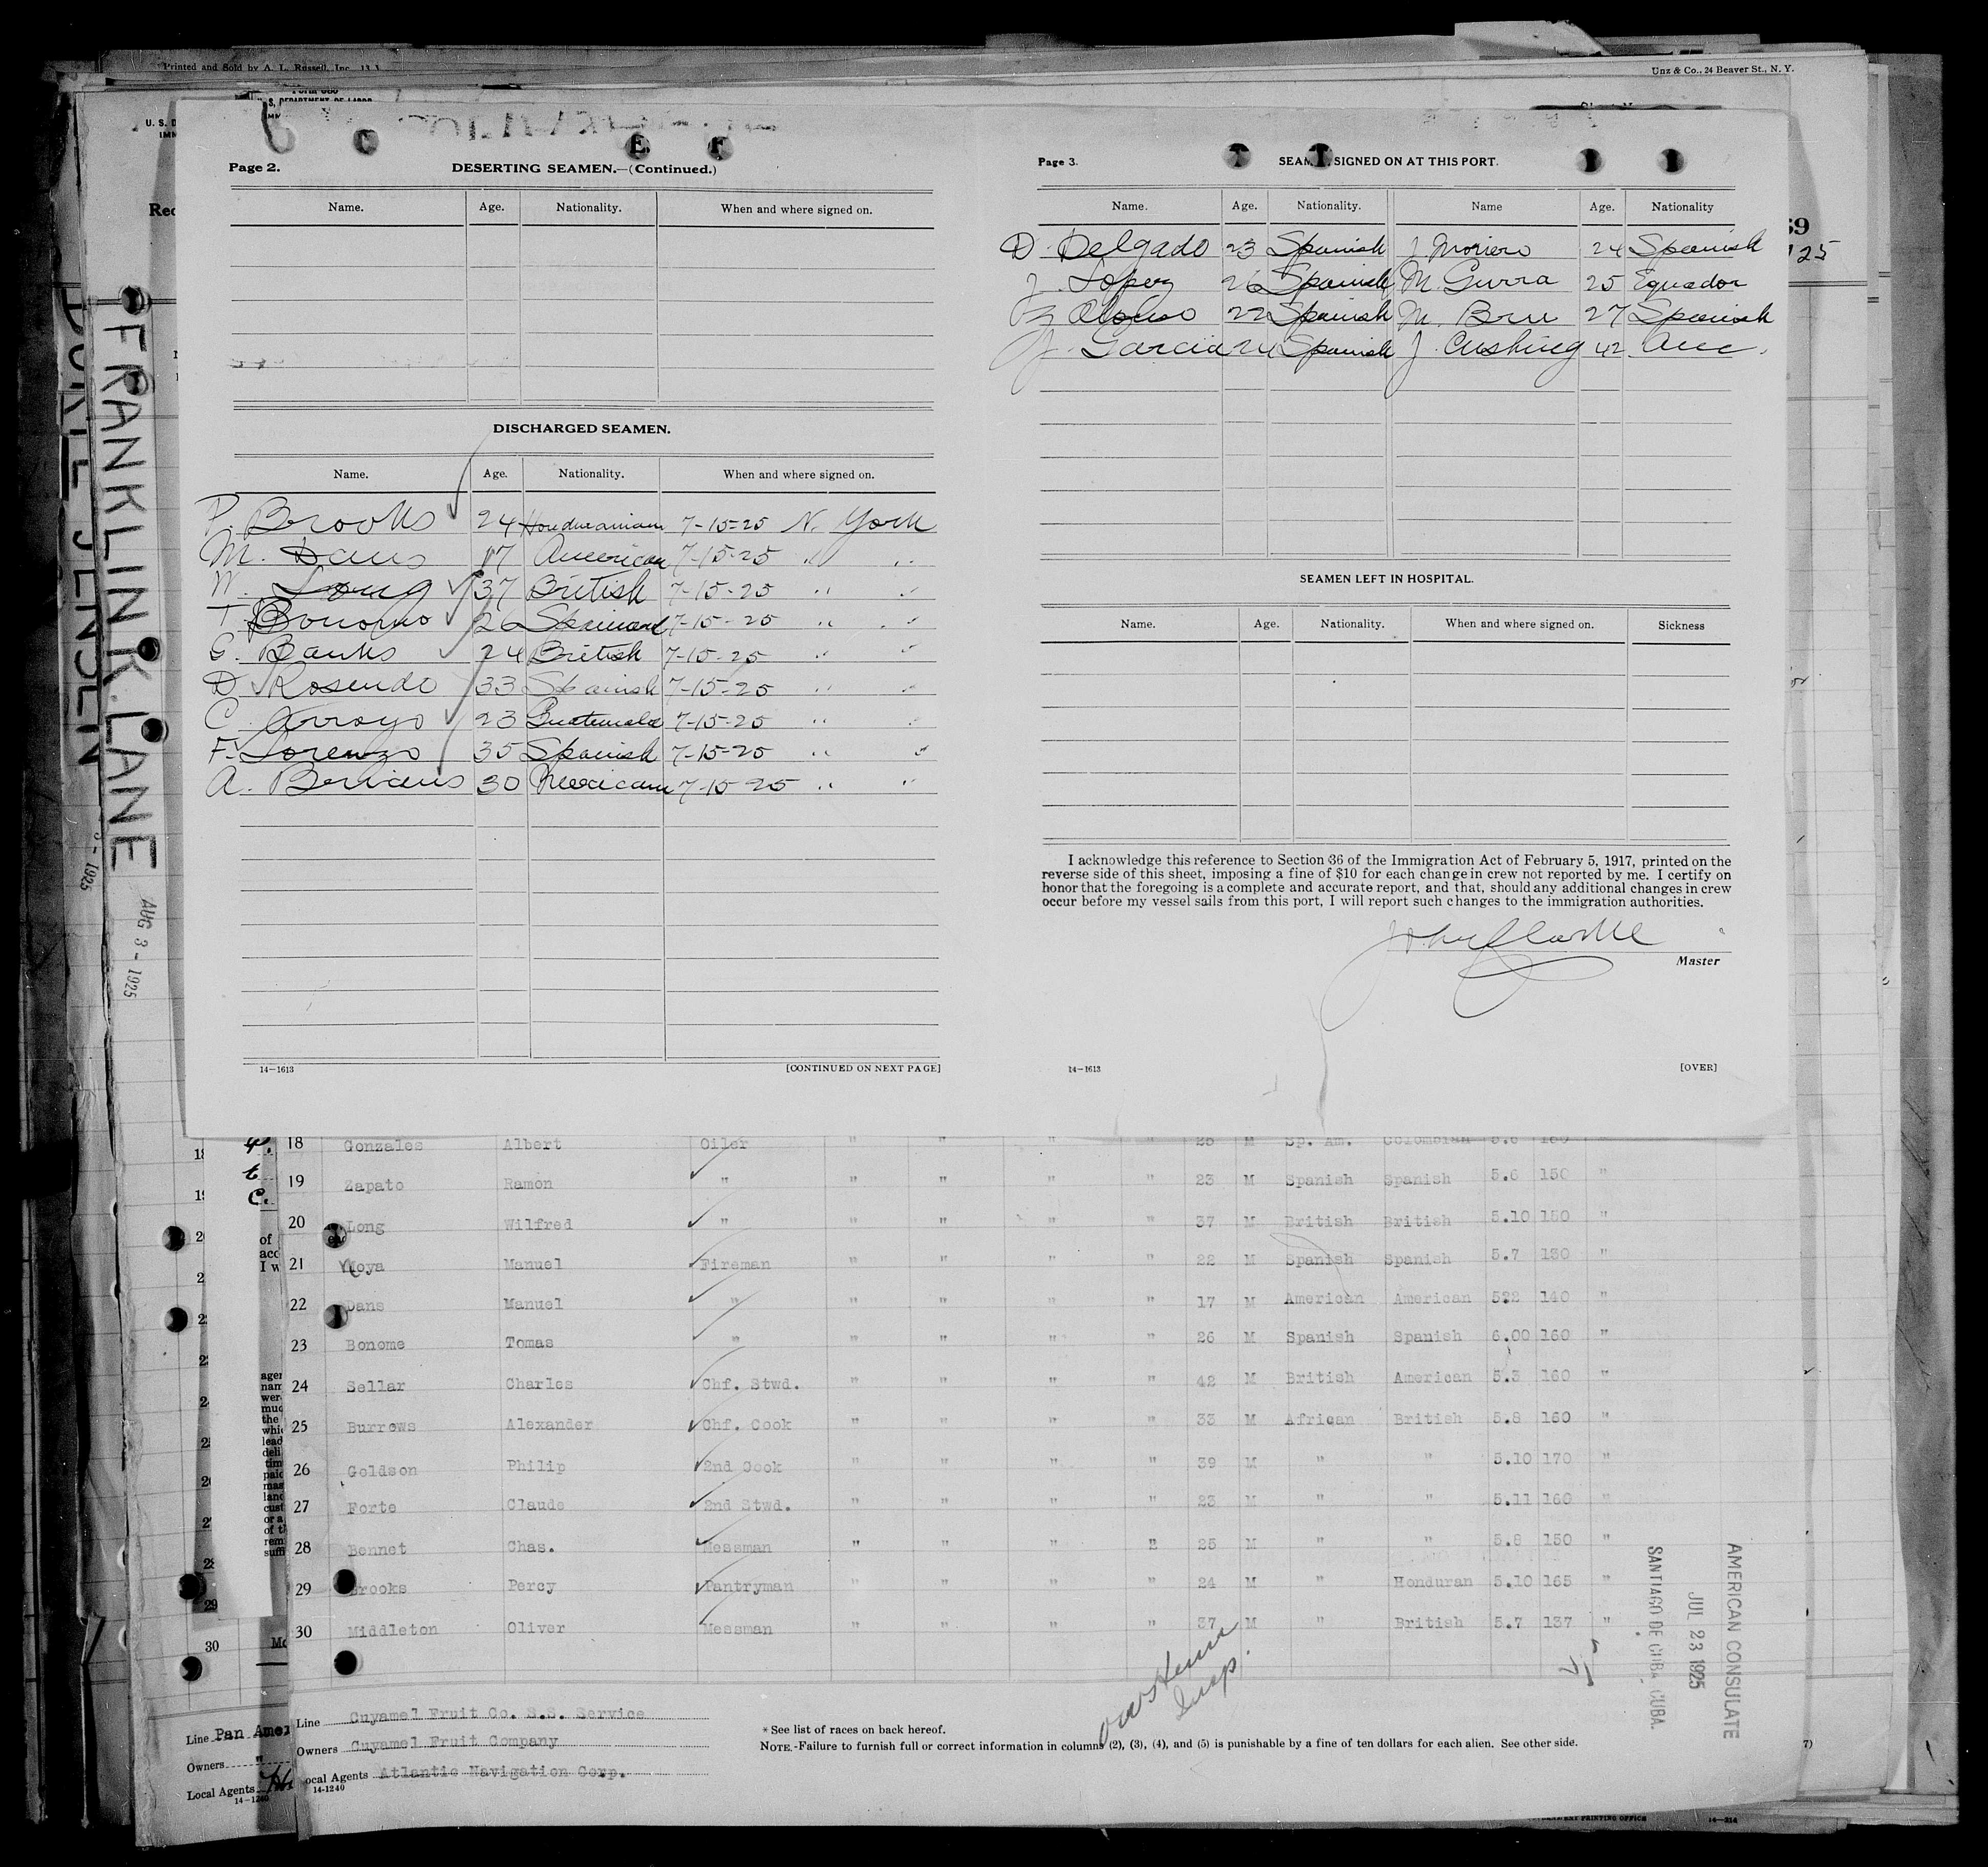 Printed and Sold by A. L. Russell, Inc.
Unz & Co., 24 Beaver St., N. Y.
C E. F
Page 2. DESERTING SEAMEN.—(Continued.)
Name. Age. Nationality. When and where signed on.
DISCHARGED SEAMEN.
Name. Age. Nationality. When and where signed on.
P. Brooks 24 Honduranian 7-15-25 N. York
M. Dans 17 American 7-15-25 " "
W. Long 37 British 7-15-25 " "
T. Bonomo 26 Spaniard 7-15-25 " "
G. Banks 24 British 7-15-25 " "
D Rosendo 33 Spanish 7-15-25 " "
C. Arroyo 23 Guatemala 7-15-25 " "
F. Lorenzo 35 Spanish 7-15-25 " "
A. 30 Mexican 7-15-25 " "
14—1613 [CONTINUED ON NEXT PAGE]
Page 3. SEAMEN SIGNED ON AT THIS PORT.
Name. Age. Nationality. Name Age. Nationality
D. Delgado 23 Spanish J. 24 Spanish
J. Lopez 26 Spanish M. Gurra 25 Equador
Alonso 22 Spanish M. Bru 27 Spanish
J. Garcia 24 Spanish J. Cushing 42 Am.
SEAMEN LEFT IN HOSPITAL.
Name. Age. Nationality. When and where signed on. Sickness
I acknowledge this reference to Section 36 of the Immigration Act of February 5, 1917, printed on the
reverse side of this sheet, imposing a fine of $10 for each change in crew not reported by me. I certify on
honor that the foregoing is a complete and accurate report, and that, should any additional changes in crew
occur before my vessel sails from this port, I will report such changes to the immigration authorities.
Master
14—1613 [OVER]
FRANKLIN K. LANE
AUG 3 - 1925
JENSEN
1925
18 Gonzales Albert Oiler " " " " 28 M Sp. Am. Colombian 5.6 160 "
19 Zapato Ramon " " " " " 23 M Spanish Spanish 5.6 150 "
20 Long Wilfred " " " " " 37 M British British 5.10 150 "
21 Moya Manuel Fireman " " " 22 M Spanish Spanish 5.7 130 "
22 Dans Manuel " " " " " 17 M American American 140 "
23 Bonome Tomas " " " " " 26 M Spanish Spanish 6.00 160 "
24 Sellar Charles Chf. Stwd. " " " " 42 M British American 5.3 160 "
25 Burrows Alexander Chf. Cook " " " " 33 M African British 5.8 160 "
26 Goldson Philip 2nd Cook " " " " 39 M " " 5.10 170 "
27 Forte Claude 2nd Stwd. " " " " 23 M " " 5.11 160 "
28 Bennet Chas. Messman " " " " 25 M " " 5.8 150 "
29 Brooks Percy Pantryman " " " " 24 M " Honduran 5.10 165 "
30 Middleton Oliver Messman " " " " 37 M " British 5.7 137 "
AMERICAN CONSULATE
JUL 23 1925
SANTIAGO DE CUBA, CUBA.
Insp.
Line Cuyamel Fruit Co. S.S. Service
Owners Cuyamel Fruit Company
Local Agents Atlantic Navigation Corp.
14-1240
*See list of races on back hereof.
NOTE.-Failure to furnish full or correct information in columns (2), (3), (4), and (5) is punishable by a fine of ten dollars for each alien. See other side.
30
Line Pan Amer
Owners "
Local Agents
14-1240
PRINTING OFFICE 14—214